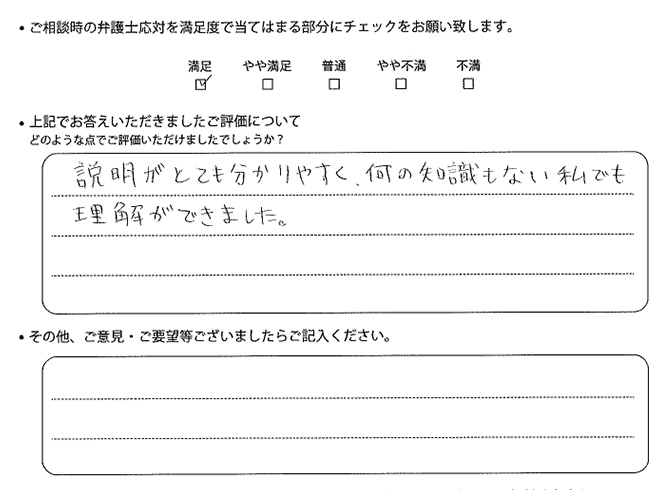 ・ご相談時の弁護士応対を満足度で当てはまる部分にチェックをお願い致します。
満足 やや満足 普通 やや不満 不満
☑ ☐ ☐ ☐ ☐
・上記でお答えいただきましたご評価について
どのような点でご評価いただけましたでしょうか？
説明がとても分かりやすく、何の知識もない私でも
理解ができました。
・その他、ご意見・ご要望等ございましたらご記入ください。